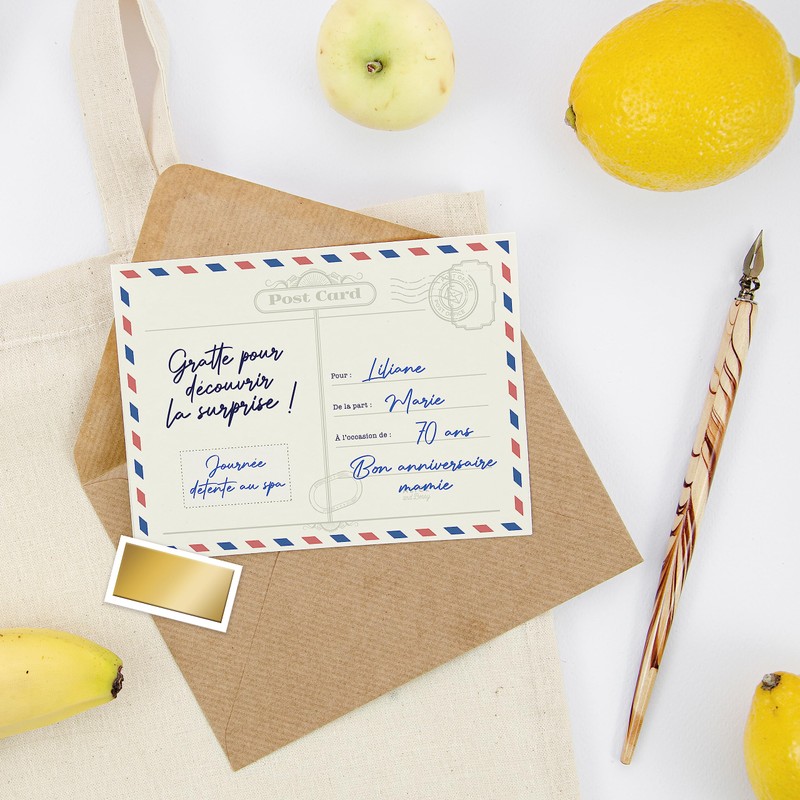 Post Card
Gratte pour
découvrir
la surprise !
Journée
détente au spa
Pour : Liliane
De la part : Marie
À l'occasion de : 70 ans
Bon anniversaire
mamie